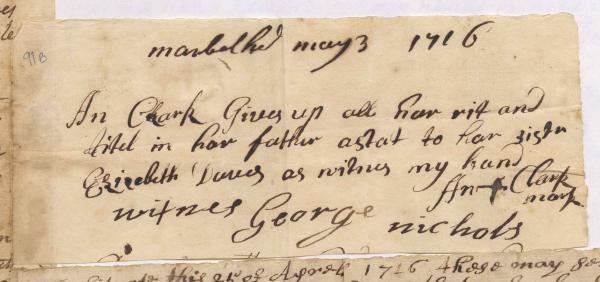 91B
marbelhd may 3 1716
An Clark Gives up all har rit and
titel in har father astat to har sistr
Elizebeth Daves as witnes my hand
An + Clark
mark
witnes George nichols
this 2d of Aprel 1716 these may